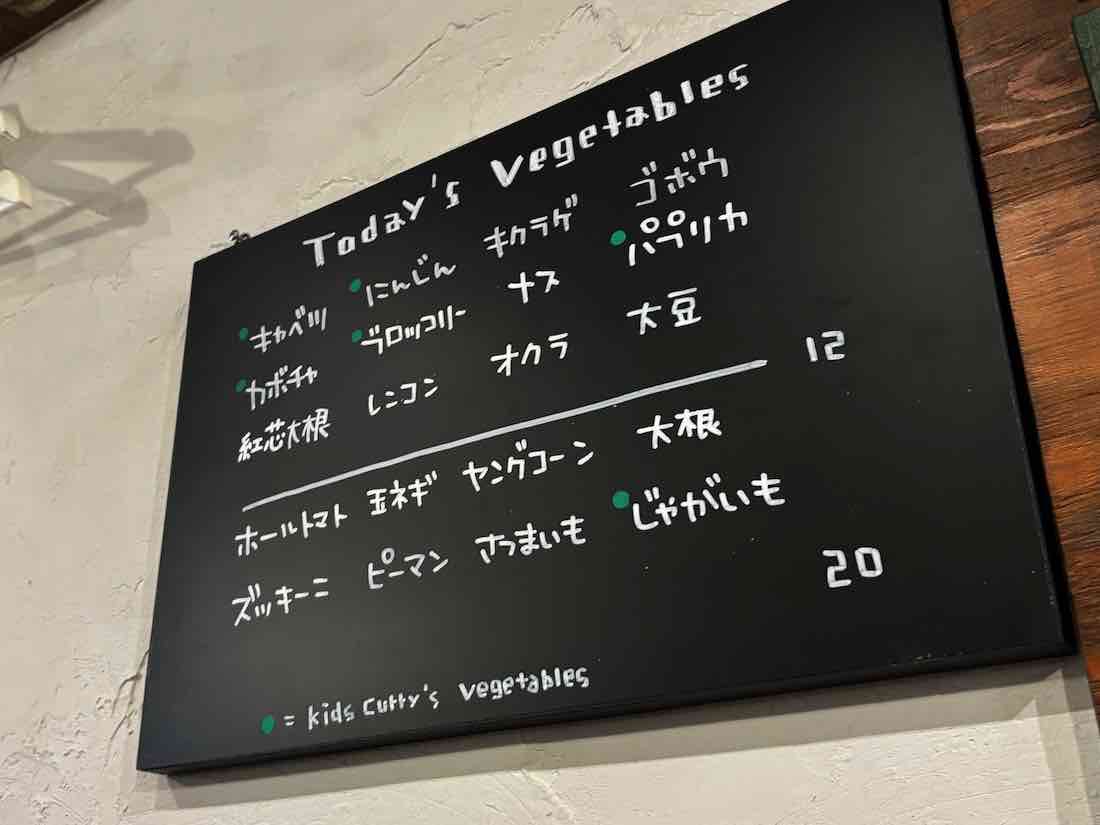 Today's Vegetables
●キャベツ ●にんじん キクラゲ ゴボウ
●カボチャ ●ブロッコリー ナス ●パプリカ
紅芯大根 レンコン オクラ 大豆
12
ホールトマト 玉ネギ ヤングコーン 大根
ズッキーニ ピーマン さつまいも ●じゃがいも
20
●= kids curry's vegetables